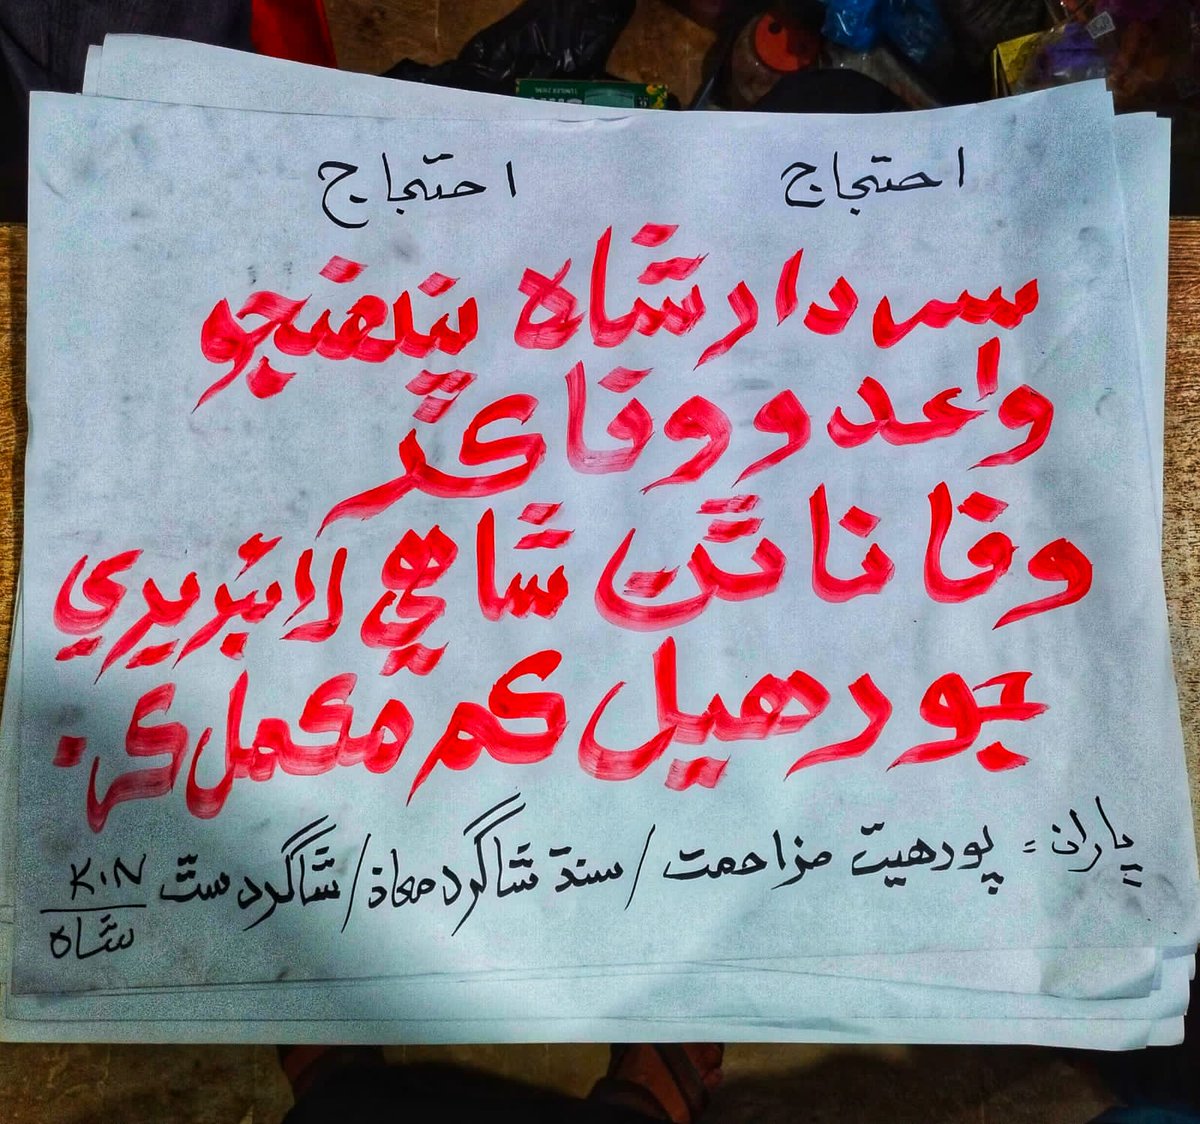 احتجاج احتجاج
سردار شاھ پنھنجو
واعدو وفا ڪر
وفا نا ٿن شاھي لائبريري
جو رهيل ڪم مڪمل ڪر.
پاران = پورهيت مزاحمت / سنڌ شاگرد معاذ / شاگرد ست
K.N شاھ